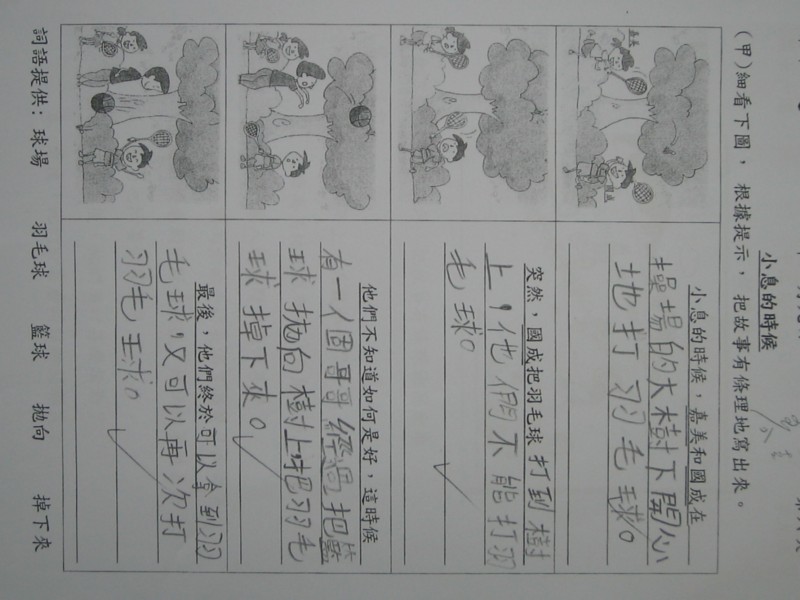 小息的時候
(甲)細看下圖，根據提示，把故事有條理地寫出來。
小息的時候，嘉美和國成在
操場的大樹下開心
地打羽毛球。
突然，國成把羽毛球打到樹
上，他們不能打羽
毛球。
他們不知道如何是好，這時候
有一個哥哥經過把籃
球拋向樹上把羽毛
球掉下來。
最後，他們終於可以拿到羽
毛球，又可以再次打
羽毛球。
詞語提供: 球場 羽毛球 籃球 拋向 掉下來